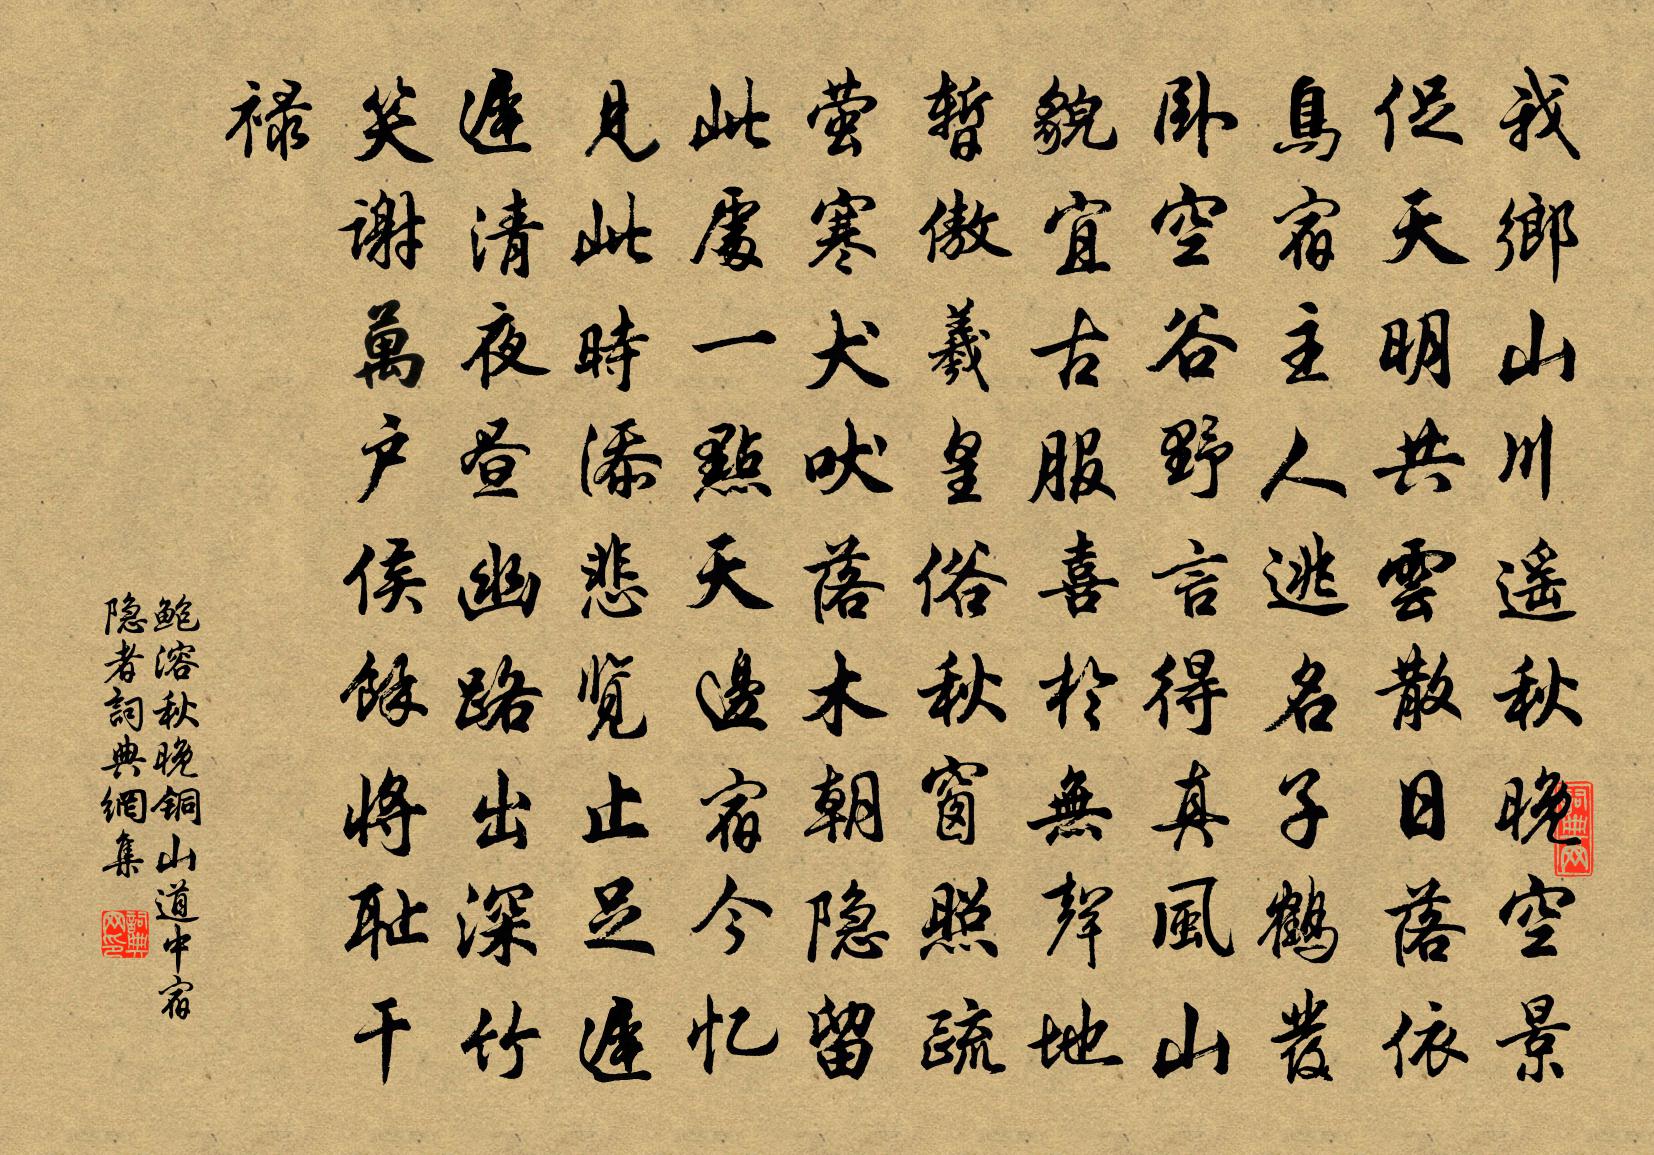 我鄉山川遥秋晚空景
促天明共雲散日落依
鳥宿主人逃名子鶴發
卧空谷野言得真風山
貌宜古服喜於無聲地
暫傲羲皇俗秋窗照疏
萤寒犬吠落木朝隐留
此處一點天邊宿今忆
見此時添悲览止足遲
遲清夜昼幽路出深竹
笑谢萬户侯餘將耻干
禄
鲍溶秋晚铜山道中宿
隐者詞典網集
词典网
詞典网印